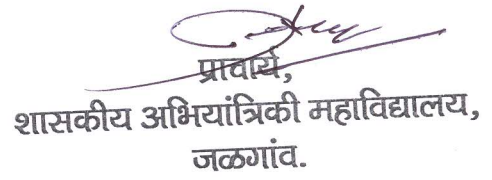 प्राचार्य,
शासकीय अभियांत्रिकी महाविद्यालय,
जळगांव.